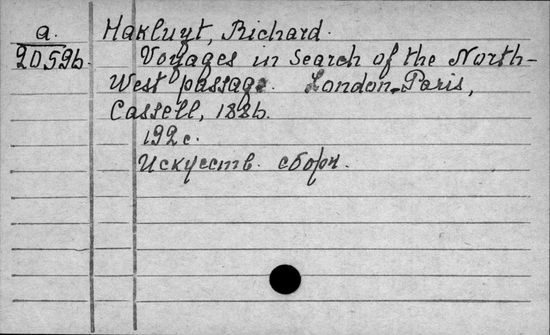 a. Hakluyt, Richard.
2052b. Voyages in Search of the North-
West passage. London-Paris,
Cassell, 188b.
192 c.
Искусств. сборн.